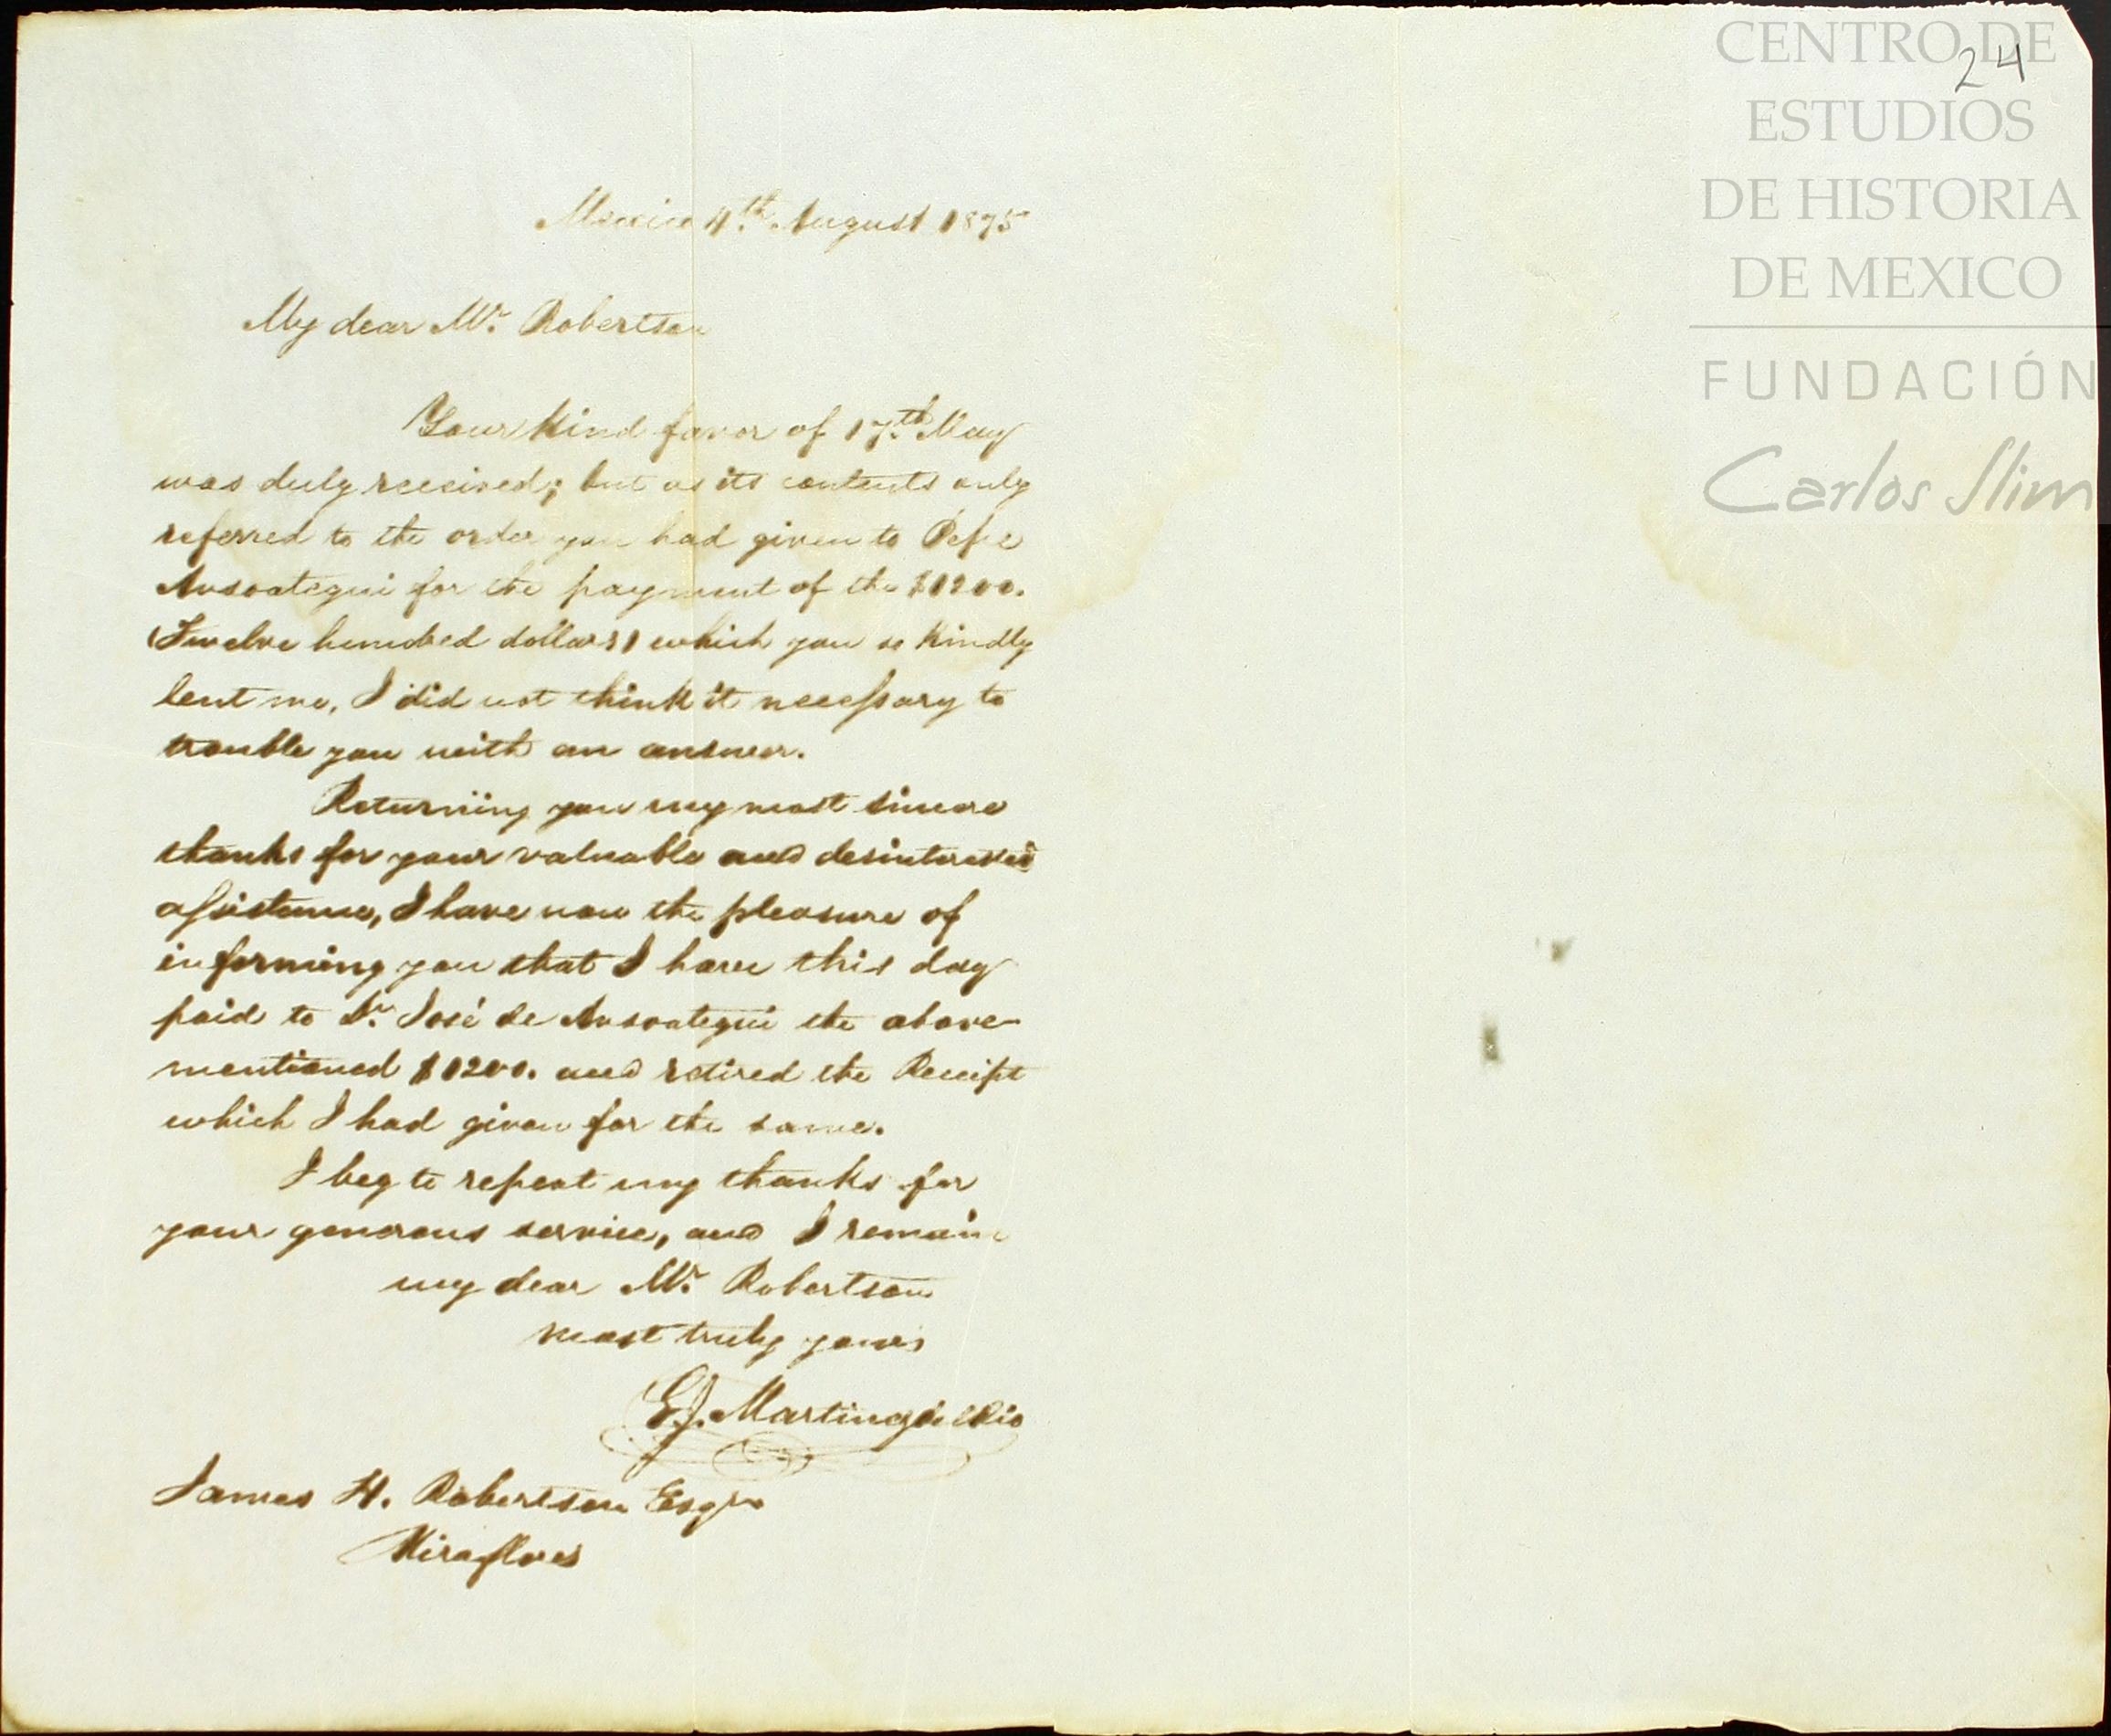 24
CENTRO DE
ESTUDIOS
DE HISTORIA
DE MEXICO
FUNDACIÓN
Carlos Slim
Mexico 4th August 1875
My dear Mr. Robertson
Your kind favor of 17th May
was duly received; but as its contents only
referred to the order you had given to Pepe
Ansoategui for the payment of the $1200.
(Twelve hundred dollars) which you so kindly
lent me, I did not think it necessary to
trouble you with an answer.
Returning you my most sincere
thanks for your valuable and desinterested
assistance, I have now the pleasure of
informing you that I have this day
paid to Dn. José de Ansoategui the above-
mentioned $1200. and retired the Receipt
which I had given for the same.
I beg to repeat my thanks for
your generous service, and I remain
my dear Mr. Robertson
most truly yours
G. Martinez del Rio
James H. Robertson Esqre
Miraflores